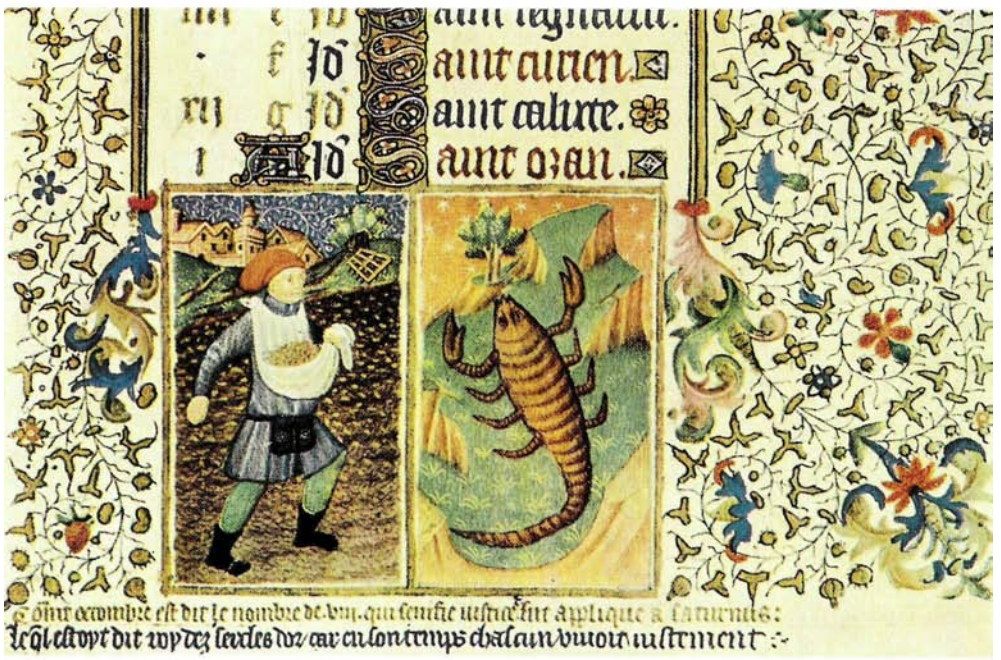 aint regnault.
f Id aint curien.
xii g Id aint calixte.
i A Id aint oran.
octombre est dit le nombre de. viii. qui senifie iustice fut applique a saturnus:
le ql estoyt dit roy dez seicles dor car en son temps chascun vivoit iustement :~